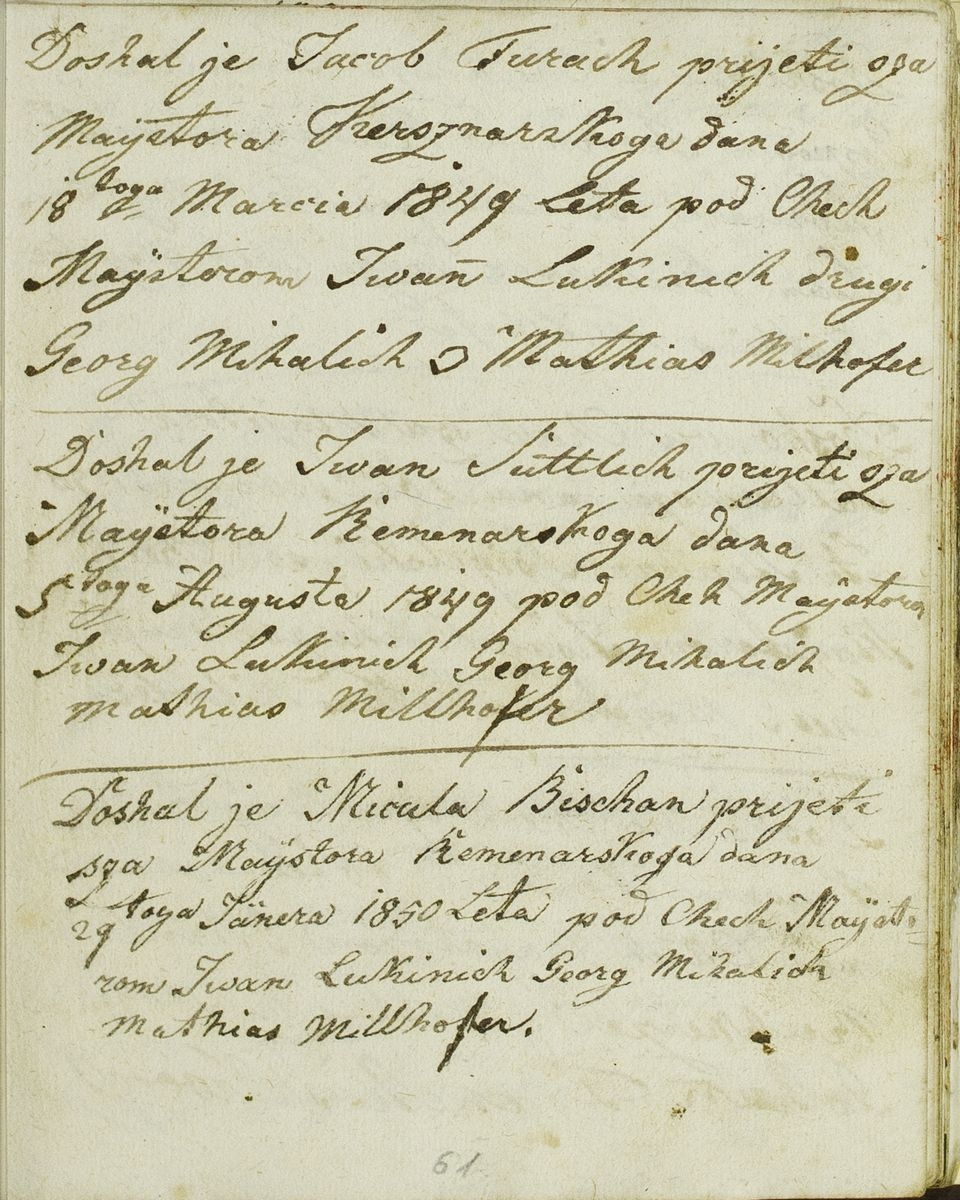 Doshal je Jacob Turach prijeti sza
Maÿstora Kersznarskoga dana
18toga Marcia 1849 Leta pod Chech
Maÿstorom Iwan̄ Lukinich drugi
Georg Mihalich Mathias Milhofer
Doshal je Iwan Süttlich prijeti sza
Maÿstora Remenarskoga dana
5toga Augusta 1849 pod Cheh Maÿstorom
Iwan Lukinich Georg Mihalich
mathias Millhofer
Doshal je Micula Bischan prijeti
sza Maÿstora Remenarskoga dana
29toga Jänera 1850 Leta pod Chech Maÿsto-
rom Iwan Lukinich Georg Mihalich
mathias Millhofer.
61